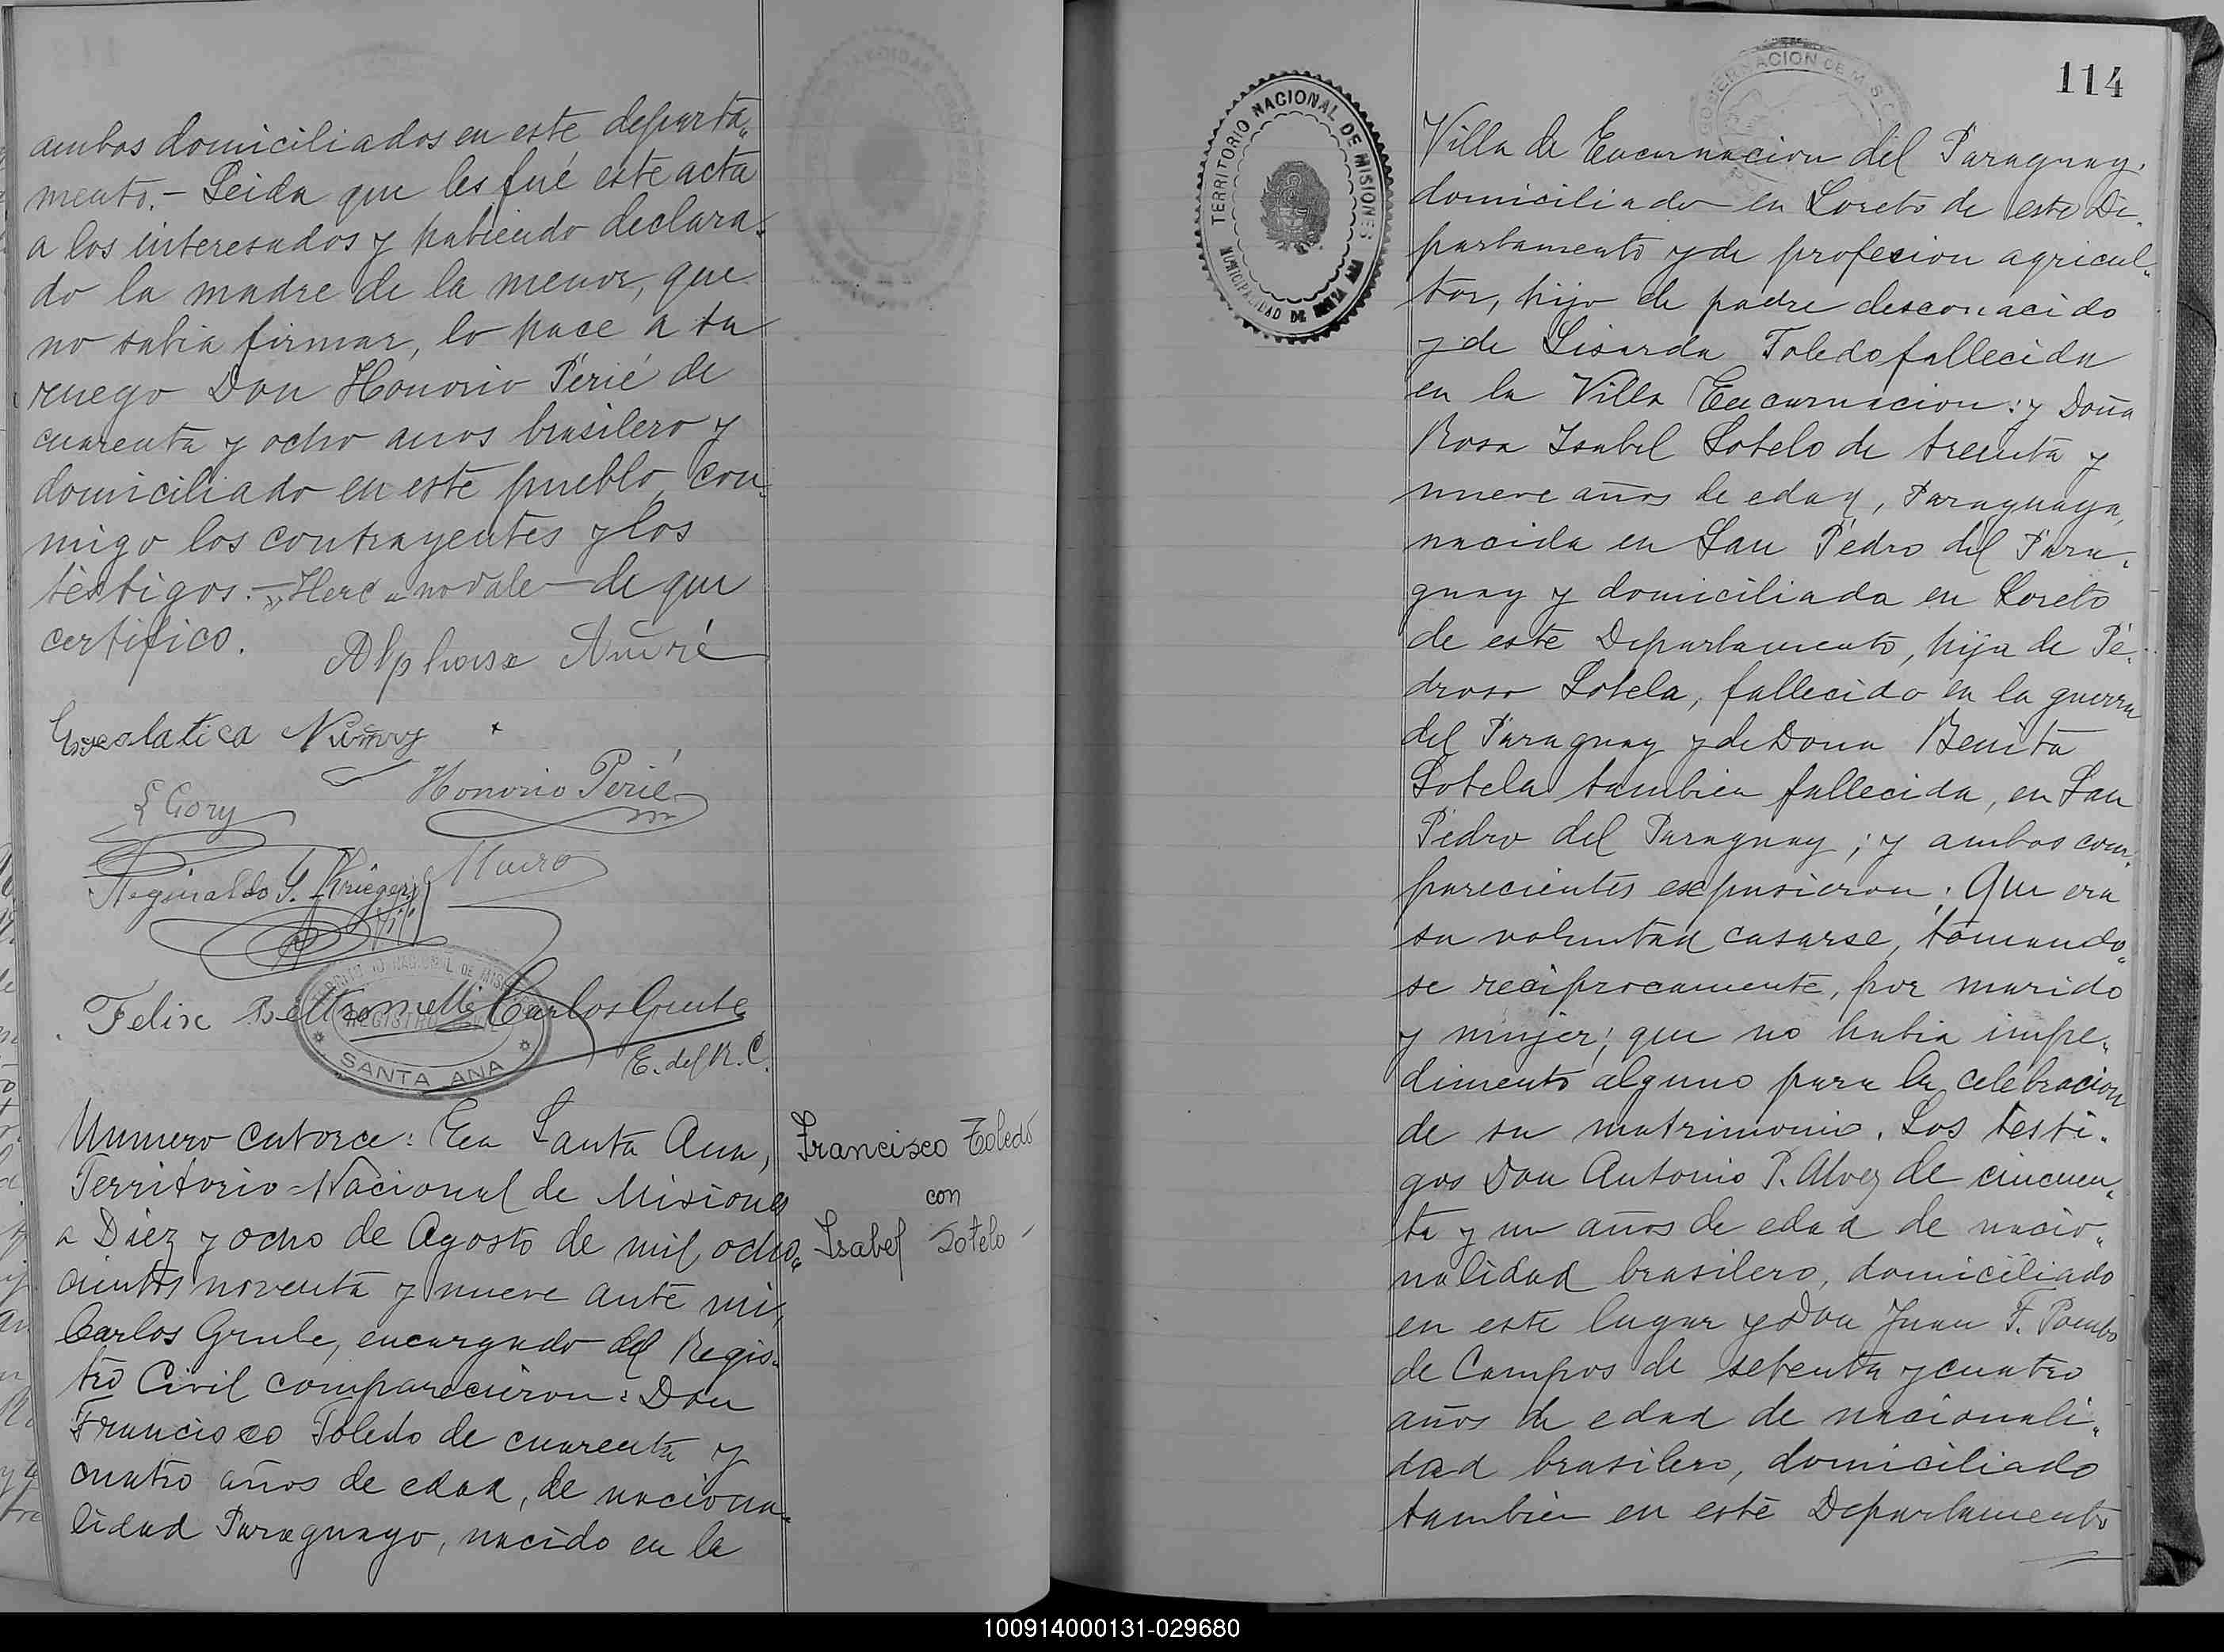 ambos domiciliados en este departa„
mento.- Leida que les fué este acta
a los interesados y habiendo declara„
do la madre de la menor, que
no sabia firmar, lo hace a su
ruego Don Honorio Perié de
cuarenta y ocho anos brasilero y
domiciliado en este pueblo con„
migo los contrayentes y los
testigos.- „Herc„ no vale - de que
certifico.
Alphonse
Escolatica
L Gory
Honorio Perié
Reginaldo G. Krieger
Felix Beltramelli
Carlos Grube
E. del R. C.
TERRITORIO NACIONAL DE MISIONES
REGISTRO CIVIL
SANTA ANA
Numero catorce: En Santa Ana,
Territorio Nacional de Misiones
a Diez y ocho de Agosto de mil ocho„
cientos noventa y nueve ante mi,
Carlos Grube, encargado del Regis„
tro Civil comparecieron: Don
Francisco Toledo de cuarenta y
cuatro años de edad, de naciona„
lidad Paraguayo, nacido en la
Francisco Toledo
con
Isabel Sotelo
114
GOBERNACION DE MISIONES
TERRITORIO NACIONAL DE MISIONES
MUNICIPALIDAD DE SANTA ANA
Villa de Encarnacion del Paraguay,
domiciliado en Loreto de este De„
partamento y de profecion agricul„
tor, hijo de padre desconacido
y de Lisarda Toledo fallecida
en la Villa Encarnacion: y Doña
Rosa Isabel Sotelo de treinta y
nueve años de edad, Paraguaya,
nacida en San Pedro del Para„
guay y domiciliada en Loreto
de este Departamento, hija de Pe„
droso Sotela, fallecido en la guerra
del Paraguay y de Dona Benita
Sotela tambien fallecida, en San
Pedro del Paraguay; y ambos com„
parecientes expusieron: Que era
su voluntad casarse, tomando„
se reciprocamente, por marido
y mujer; que no habia impe„
dimento alguno para la celebracion
de su matrimonio. Los testi„
gos Don Antonio P. Alvez de cincuen„
ta y un años de edad de nacio„
nalidad brasilero, domiciliado
en este lugar y Don Juan F. Pombo
de Campos de setenta y cuatro
años de edad de nacionali„
dad brasilero, domiciliado
tambien en este Departamento
100914000131-029680